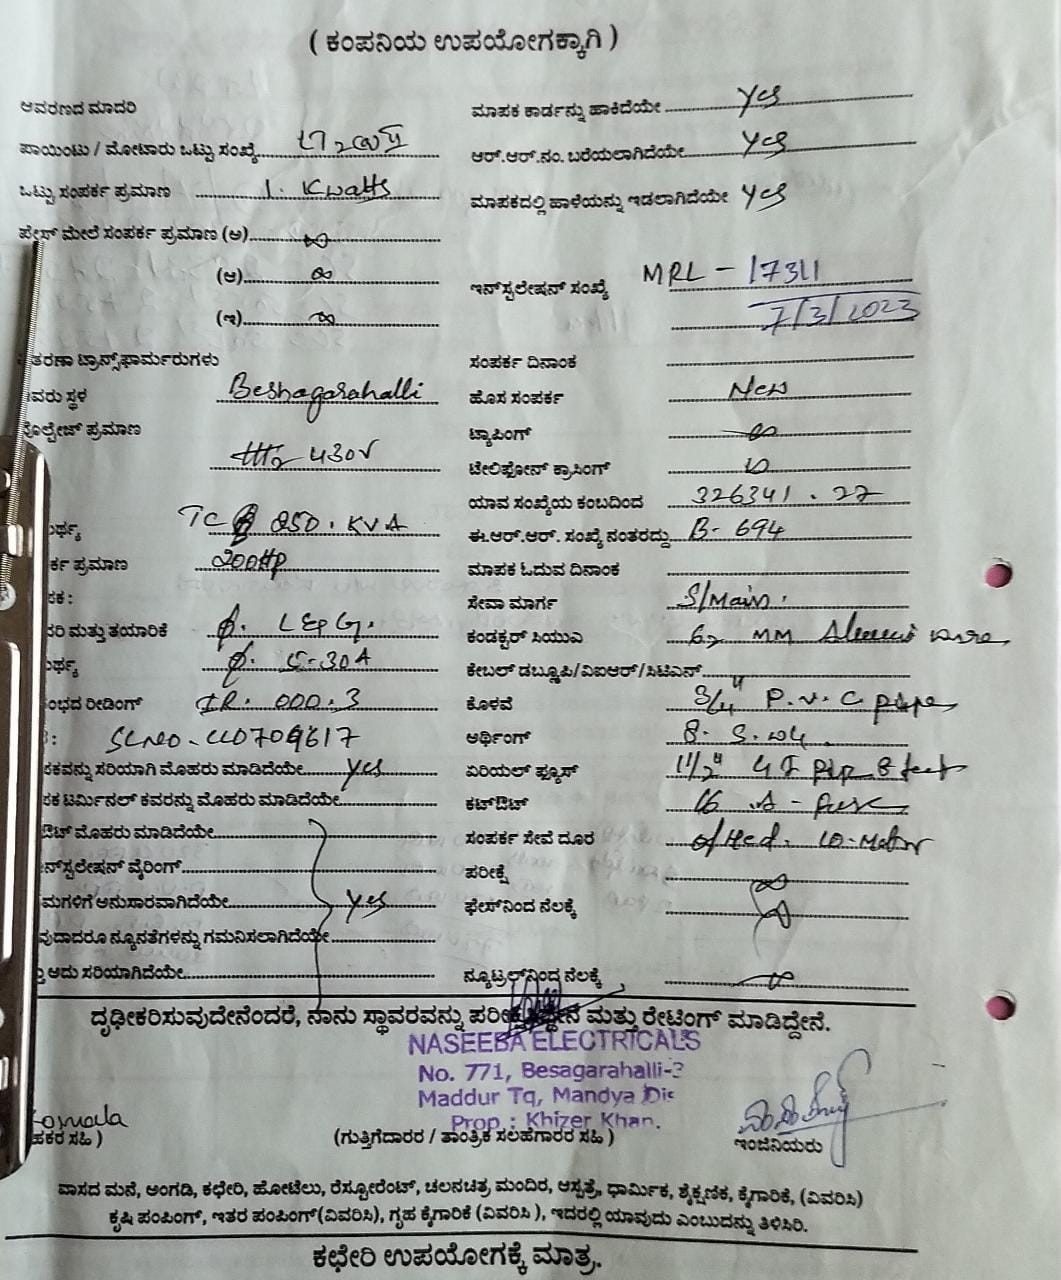 ( ಕಂಪನಿಯ ಉಪಯೋಗಕ್ಕಾಗಿ )
ಆವರಣದ ಮಾದರಿ
ಮಾಪಕ ಕಾರ್ಡನ್ನು ಹಾಕಿದೆಯೇ Yes
ಪಾಯಿಂಟು / ಮೋಟಾರು ಒಟ್ಟು ಸಂಖ್ಯೆ
ಆರ್.ಆರ್.ನಂ. ಬರೆಯಲಾಗಿದೆಯೇ Yes
ಒಟ್ಟು ಸಂಪರ್ಕ ಪ್ರಮಾಣ 1. Kwatts
ಮಾಪಕದಲ್ಲಿ ಹಾಳೆಯನ್ನು ಇಡಲಾಗಿದೆಯೇ Yes
ಫೇಸ್ ಮೇಲೆ ಸಂಪರ್ಕ ಪ್ರಮಾಣ (ಅ)
(ಆ)
ಇನ್‌ಸ್ಟಲೇಷನ್ ಸಂಖ್ಯೆ MRL - 17311
(ಇ)
7/3/2023
ತರಣಾ ಟ್ರಾನ್ಸ್‌ಫಾರ್ಮರುಗಳು
ಸಂಪರ್ಕ ದಿನಾಂಕ
ವರು ಸ್ಥಳ Beshagarahalli
ಹೊಸ ಸಂಪರ್ಕ New
ವೋಲ್ಟೇಜ್ ಪ್ರಮಾಣ 430V
ಟ್ಯಾಪಿಂಗ್
ಟೇಲಿಫೋನ್ ಕ್ರಾಸಿಂಗ್
ಯಾವ ಸಂಖ್ಯೆಯ ಕಂಬದಿಂದ 326341.27
ರ್ಥ್ಯ TC 250. KVA
ಈ.ಆರ್.ಆರ್. ಸಂಖ್ಯೆ ನಂತರದ್ದು B-694
ರ್ಕ ಪ್ರಮಾಣ 200HP
ಮಾಪಕ ಓದುವ ದಿನಾಂಕ
ಪಕ :
ಸೇವಾ ಮಾರ್ಗ S/Main.
ದರಿ ಮತ್ತು ತಯಾರಿಕೆ L&G.
ಕಂಡಕ್ಟರ್ ಸಿಯುಎ MM
ರ್ಥ್ಯ 5-30A
ಕೇಬಲ್ ಡಬ್ಲೂಪಿ/ವಿಐಆರ್/ಸಿಟಿಎಸ್
ಂಭದ ರೀಡಿಂಗ್ IR. 000.3
ಕೊಳವೆ 3/4" P.V.C pipe
SLNO.
ಅರ್ಥಿಂಗ್ 8. S.
ಪಕವನ್ನು ಸರಿಯಾಗಿ ಮೊಹರು ಮಾಡಿದೆಯೇ Yes
ಏರಿಯಲ್ ಫ್ಯೂಸ್ 1 1/2" G I pip 8 feet
ಪಕ ಟರ್ಮಿನಲ್ ಕವರನ್ನು ಮೊಹರು ಮಾಡಿದೆಯೇ
ಕಟ್‌ಔಟ್ 16 A - fuse
ಔಟ್ ಮೊಹರು ಮಾಡಿದೆಯೇ
ಸಂಪರ್ಕ ಸೇವೆ ದೂರ o/Hed. 10-Meter
ನ್‌ಸ್ಟಲೇಷನ್ ವೈರಿಂಗ್
ಪರೀಕ್ಷೆ
ಮಗಳಿಗೆ ಅನುಸಾರವಾಗಿದೆಯೇ Yes
ಫೇಸ್‌ನಿಂದ ನೆಲಕ್ಕೆ
ವುದಾದರೂ ನ್ಯೂನತೆಗಳನ್ನು ಗಮನಿಸಲಾಗಿದೆಯೇ
ಅದು ಸರಿಯಾಗಿದೆಯೇ
ನ್ಯೂಟ್ರಲ್‌ನಿಂದ ನೆಲಕ್ಕೆ
ದೃಢೀಕರಿಸುವುದೇನೆಂದರೆ, ನಾನು ಸ್ಥಾವರವನ್ನು ಪರೀಕ್ಷಿಸಿದ್ದೇನೆ ಮತ್ತು ರೇಟಿಂಗ್ ಮಾಡಿದ್ದೇನೆ.
NASEEBA ELECTRICALS
No. 771, Besagarahalli-3
Maddur Tq, Mandya Dis
Prop : Khizer Khan.
ಹಕರ ಸಹಿ )
(ಗುತ್ತಿಗೆದಾರರ / ತಾಂತ್ರಿಕ ಸಲಹೆಗಾರರ ಸಹಿ )
ಇಂಜಿನಿಯರು
ವಾಸದ ಮನೆ, ಅಂಗಡಿ, ಕಛೇರಿ, ಹೋಟೆಲು, ರೆಸ್ಟೋರೆಂಟ್, ಚಲನಚಿತ್ರ ಮಂದಿರ, ಆಸ್ಪತ್ರೆ, ಧಾರ್ಮಿಕ, ಶೈಕ್ಷಣಿಕ, ಕೈಗಾರಿಕೆ, (ವಿವರಿಸಿ)
ಕೃಷಿ ಪಂಪಿಂಗ್, ಇತರ ಪಂಪಿಂಗ್(ವಿವರಿಸಿ), ಗೃಹ ಕೈಗಾರಿಕೆ (ವಿವರಿಸಿ ), ಇದರಲ್ಲಿ ಯಾವುದು ಎಂಬುದನ್ನು ತಿಳಿಸಿರಿ.
ಕಛೇರಿ ಉಪಯೋಗಕ್ಕೆ ಮಾತ್ರ.